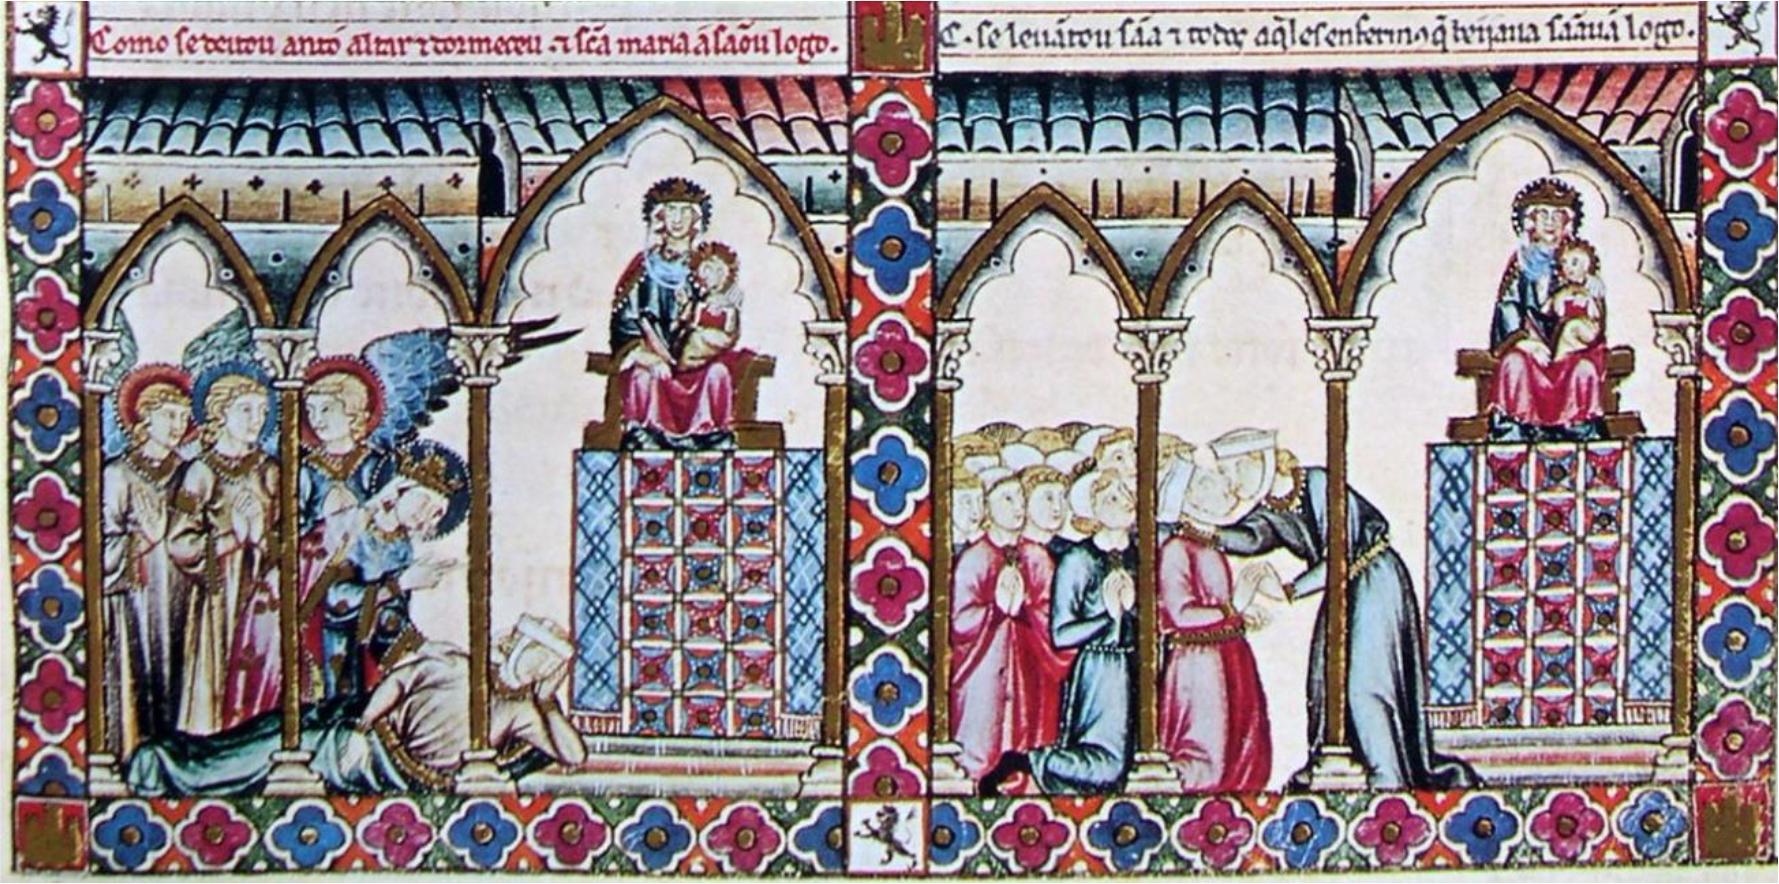 Como se deitou antó altar ⁊ dormeceu · ⁊ sc̄a maria a sãou logo.
C · se leuãtou sãa ⁊ todos aq̃les enfermos q̃ beijaua sãauã logo.